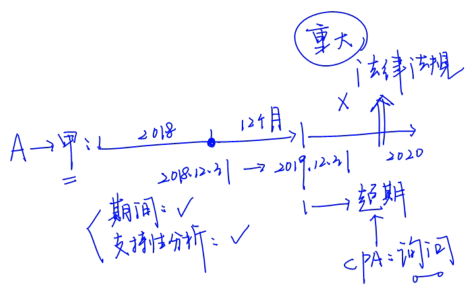 重大
法律法规
×
A→甲：
2018
12个月
2018.12.31 → 2019.12.31
2020
期间：✓
支持性分析：✓
→ 超期
CPA：询问